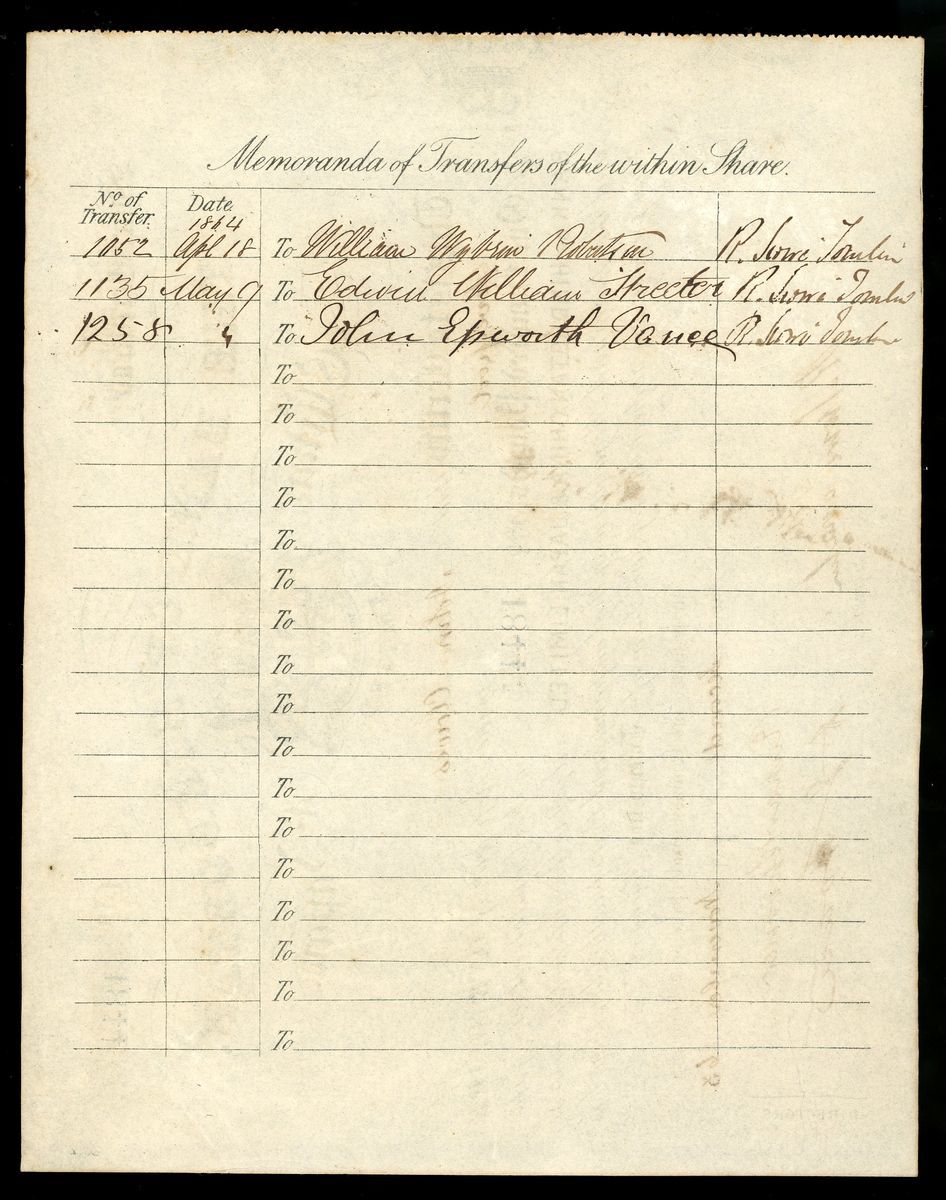 Memoranda of Transfers of the within Share.
No. of Transfer. Date
1864
1052 Apl 18 To William Wybrow Robertson R. Tomlin
1135 May 9 To Edwin William Streeter R. Tomlin
1258 " To John Epworth Vance R. Tomlin
To
To
To
To
To
To
To
To
To
To
To
To
To
To
To
To
To